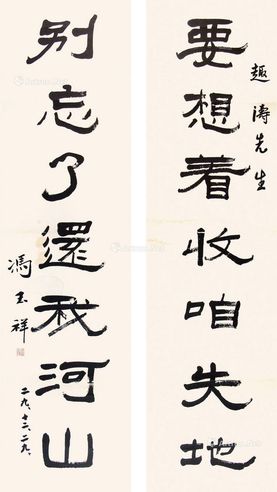 要想着收咱失地
趣涛先生
别忘了還我河山
馮玉祥
二九、十二、二九、